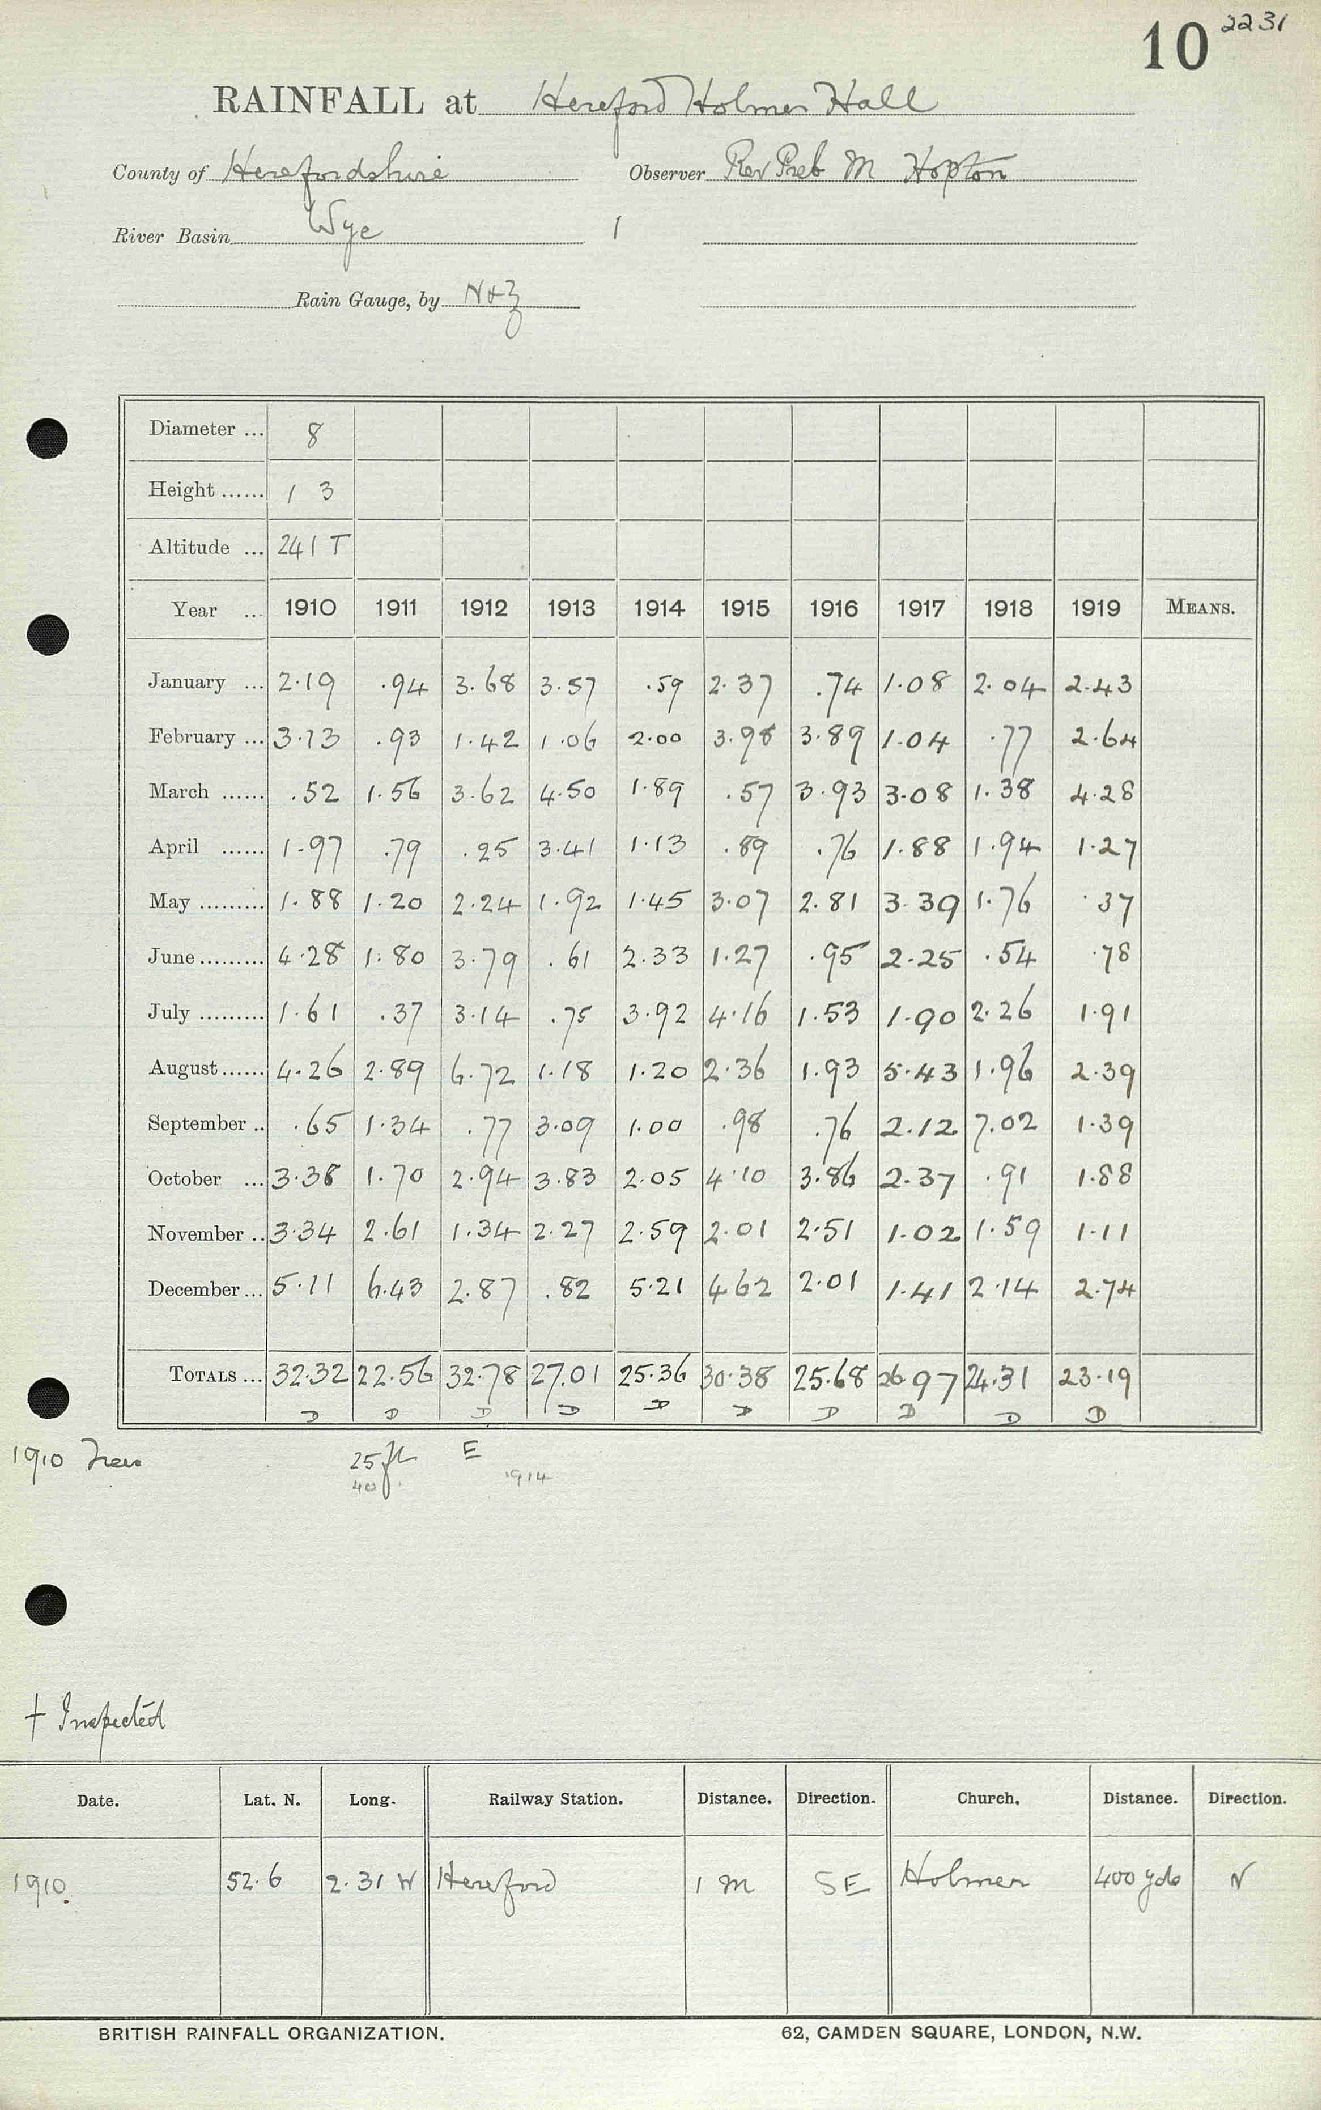 10 2231
RAINFALL at Hereford Holmer Hall
County of Herefordshire Observer Rev Preb M Hopton
River Basin Wye 1
Rain Gauge, by N+Z
Diameter ... 8
Height ...... 1 3
Altitude ... 241 T
Year ... 1910 1911 1912 1913 1914 1915 1916 1917 1918 1919 MEANS.
January ... 2.19 .94 3.68 3.57 .59 2.37 .74 1.08 2.04 2.43
February ... 3.13 .93 1.42 1.06 2.00 3.98 3.89 1.04 .77 2.64
March ...... .52 1.56 3.62 4.50 1.89 .57 3.93 3.08 1.38 4.28
April ...... 1.97 .79 .25 3.41 1.13 .89 .76 1.88 1.94 1.27
May ......... 1.88 1.20 2.24 1.92 1.45 3.07 2.81 3.39 1.76 .37
June ......... 4.28 1.80 3.79 .61 2.33 1.27 .95 2.25 .54 .78
July ......... 1.61 .37 3.14 .75 3.92 4.16 1.53 1.90 2.26 1.91
August ...... 4.26 2.89 6.72 1.18 1.20 2.36 1.93 5.43 1.96 2.39
September .. .65 1.34 .77 3.09 1.00 .98 .76 2.12 7.02 1.39
October ... 3.38 1.70 2.94 3.83 2.05 4.10 3.86 2.37 .91 1.88
November .. 3.34 2.61 1.34 2.27 2.59 2.01 2.51 1.02 1.59 1.11
December ... 5.11 6.43 2.87 .82 5.21 4.62 2.01 1.41 2.14 2.74
TOTALS ... 32.32 22.56 32.78 27.01 25.36 30.38 25.68 26.97 24.31 23.19
D D D D D D D D D D
1910 25 ft E
40 ft. 1914
† Inspected
Date. Lat. N. Long. Railway Station. Distance. Direction. Church. Distance. Direction.
1910. 52.6 2.31 W Hereford 1 m SE Holmer 400 yds N
BRITISH RAINFALL ORGANIZATION. 62, CAMDEN SQUARE, LONDON, N.W.